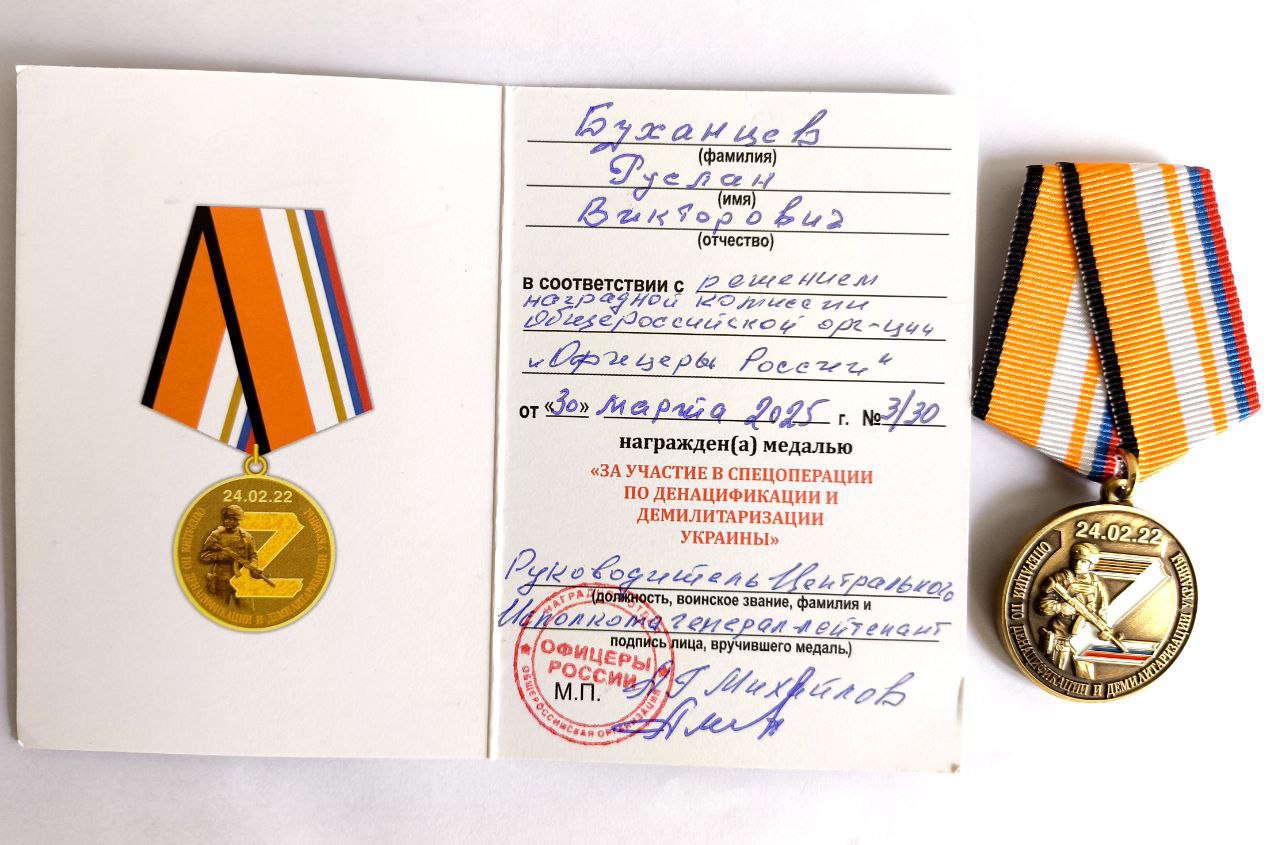 24.02.22
ОПЕРАЦИЯ ПО ДЕНАЦИФИКАЦИИ И ДЕМИЛИТАРИЗАЦИИ УКРАИНЫ
Буханцев
(фамилия)
Руслан
(имя)
Викторович
(отчество)
в соответствии с решением
наградной комиссии
Общероссийской орг-ции
"Офицеры России"
от «30» марта 2025 г. № 3/30
награжден(а) медалью
«ЗА УЧАСТИЕ В СПЕЦОПЕРАЦИИ
ПО ДЕНАЦИФИКАЦИИ И
ДЕМИЛИТАРИЗАЦИИ
УКРАИНЫ»
Руководитель Центрального
(должность, воинское звание, фамилия и
Исполкома генерал-лейтенант
подпись лица, вручившего медаль.)
Михайлов
М.П.
ОФИЦЕРЫ
РОССИИ
ОБЩЕРОССИЙСКАЯ ОРГАНИЗАЦИЯ
24.02.22
ОПЕРАЦИЯ ПО ДЕНАЦИФИКАЦИИ И ДЕМИЛИТАРИЗАЦИИ УКРАИНЫ